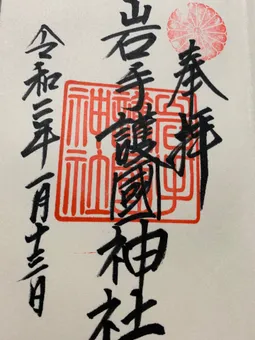 奉拝
岩手護國神社
令和二年一月十三日